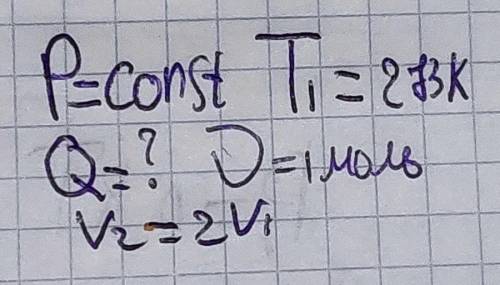 P=const T₁=273K
Q=? ν=1моль
V₂=2V₁